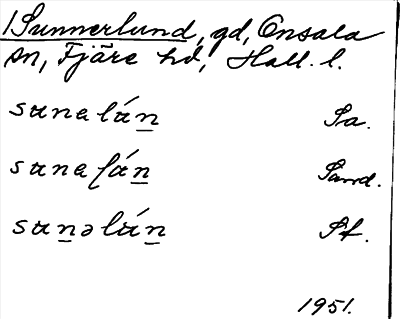 1 Sunnerlund, gd, Onsala
sn, Fjäre hd, Hall. l.
sɯnalɯ́n̲ Sa.
sɯnaʃɯ́n̲ Sand.
sɯn̲əlɯ́n̲ Sf.
1951.